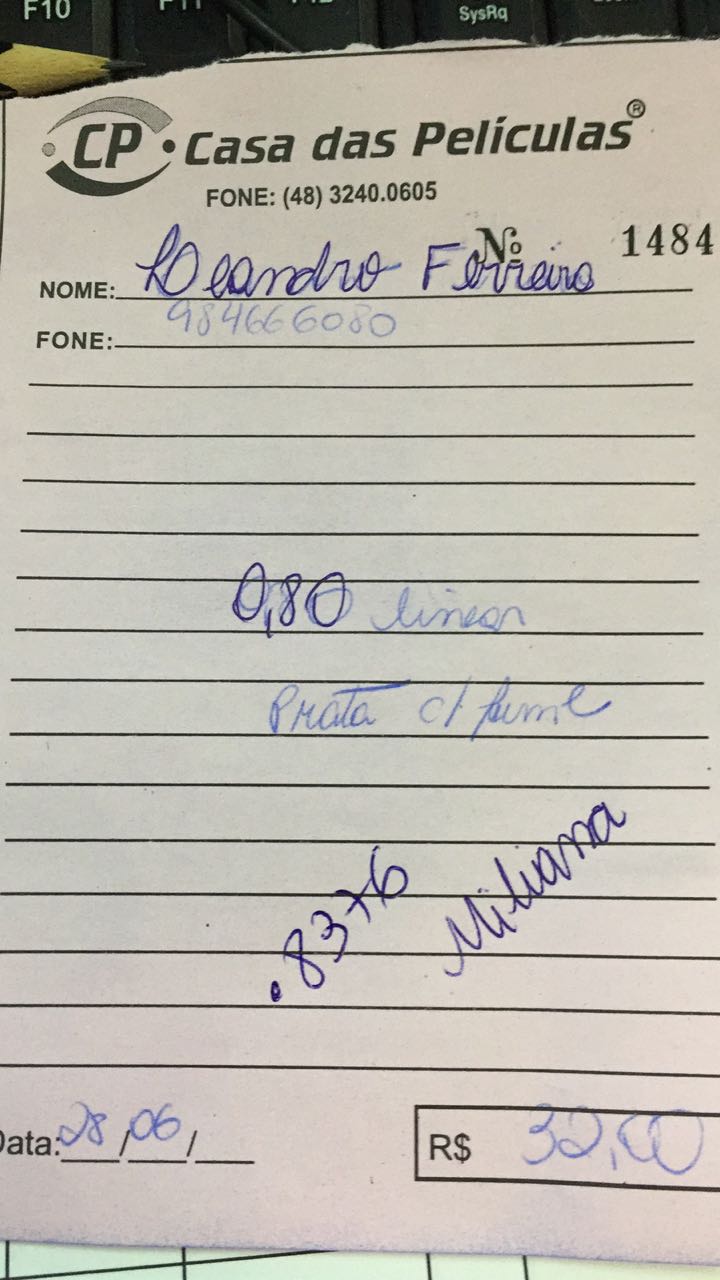 F10 F11 F12 SysRq
CP Casa das Películas®
FONE: (48) 3240.0605
Nº 1484
NOME: Leandro Ferreira
FONE: 984666080
0,80 linear
Prata c/ fumê
.8376 Miliana
Data: 28/06/
R$ 32,00